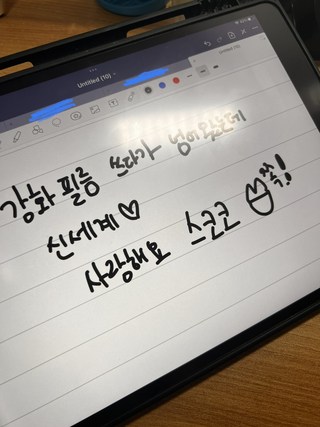 Untitled (10)
강화 필름 쓰다가 넘어왔는데
신세계♡
사랑해요 스코코 쪽!